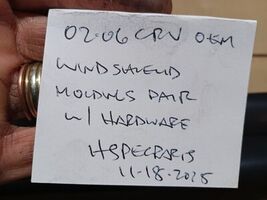 02-06 CRV OEM
WINDSHIELD
MOLDINGS PAIR
w/ HARDWARE
HSPECPARTS
11-18-2025